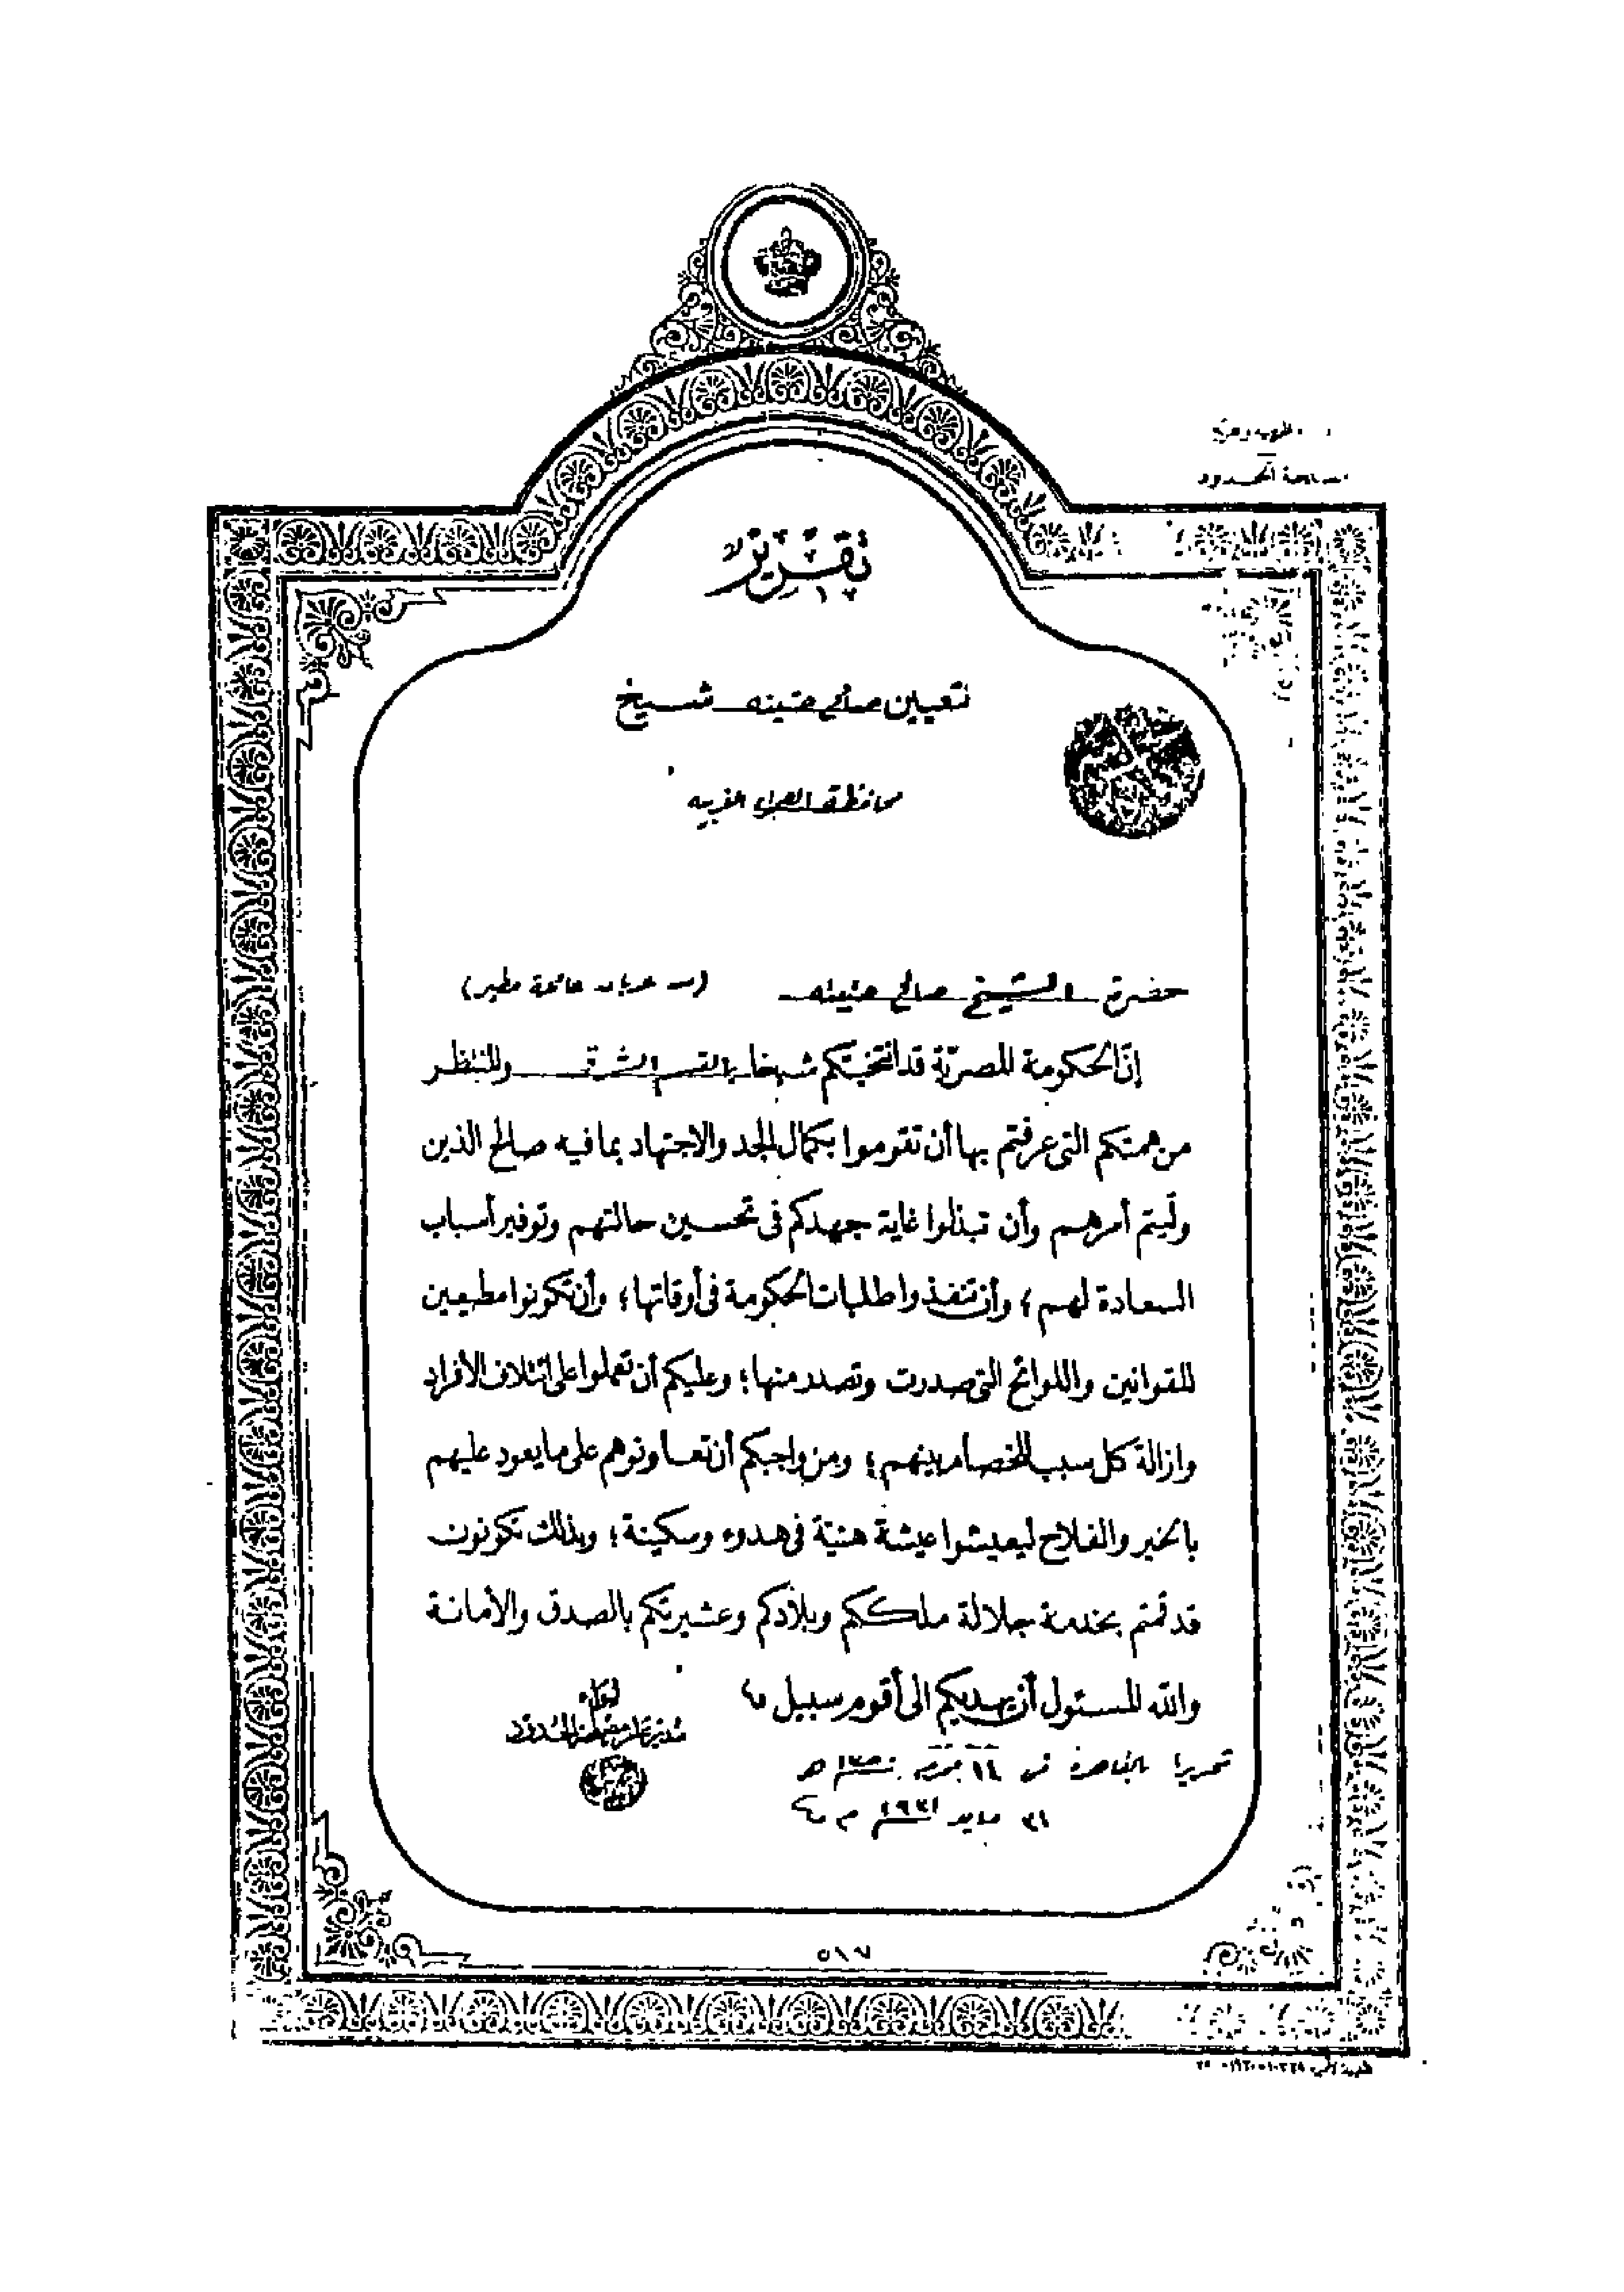 مصلحة الحدود
تقرير
تعيين صالح حتيته شيخ
محافظة الصحراء الغربيه
حضرة الشيخ صالح حتيته (من عربان عائلة مطير)
إن الحكومة المصرية قد انتخبتكم شيخا بالقسم الشرقى وللنتظر
من همتكم التى عرفتم بها أن تقوموا بكمال الجد والاجتهاد بما فيه صالح الذين
وليتم أمرهم وأن تبذلوا غاية جهدكم فى تحسين حالتهم وتوفير أسباب
السعادة لهم؛ وأن تنفذوا طلبات الحكومة فى أوقاتها؛ وأن تكونوا مطيعين
للقوانين واللوائح التى صدرت وتصدر منها؛ وعليكم أن تعملوا على ائتلاف الأفراد
وازالة كل سبب للخصام بينهم؛ ومن واجبكم أن تعاونوهم على ما يعود عليهم
بالخير والفلاح ليعيشوا عيشة هنية فى هدوء وسكينة؛ وبذلك تكونون
قد قمتم بخدمة جلالة ملككم وبلادكم وعشيرتكم بالصدق والأمانة
والله المسئول أن يهديكم الى أقوم سبيل
لواء
مدير عام مصلحة الحدود
تحريرا بالقاهرة فى ١٤ هـ
٣١ مايو م
٥١٧